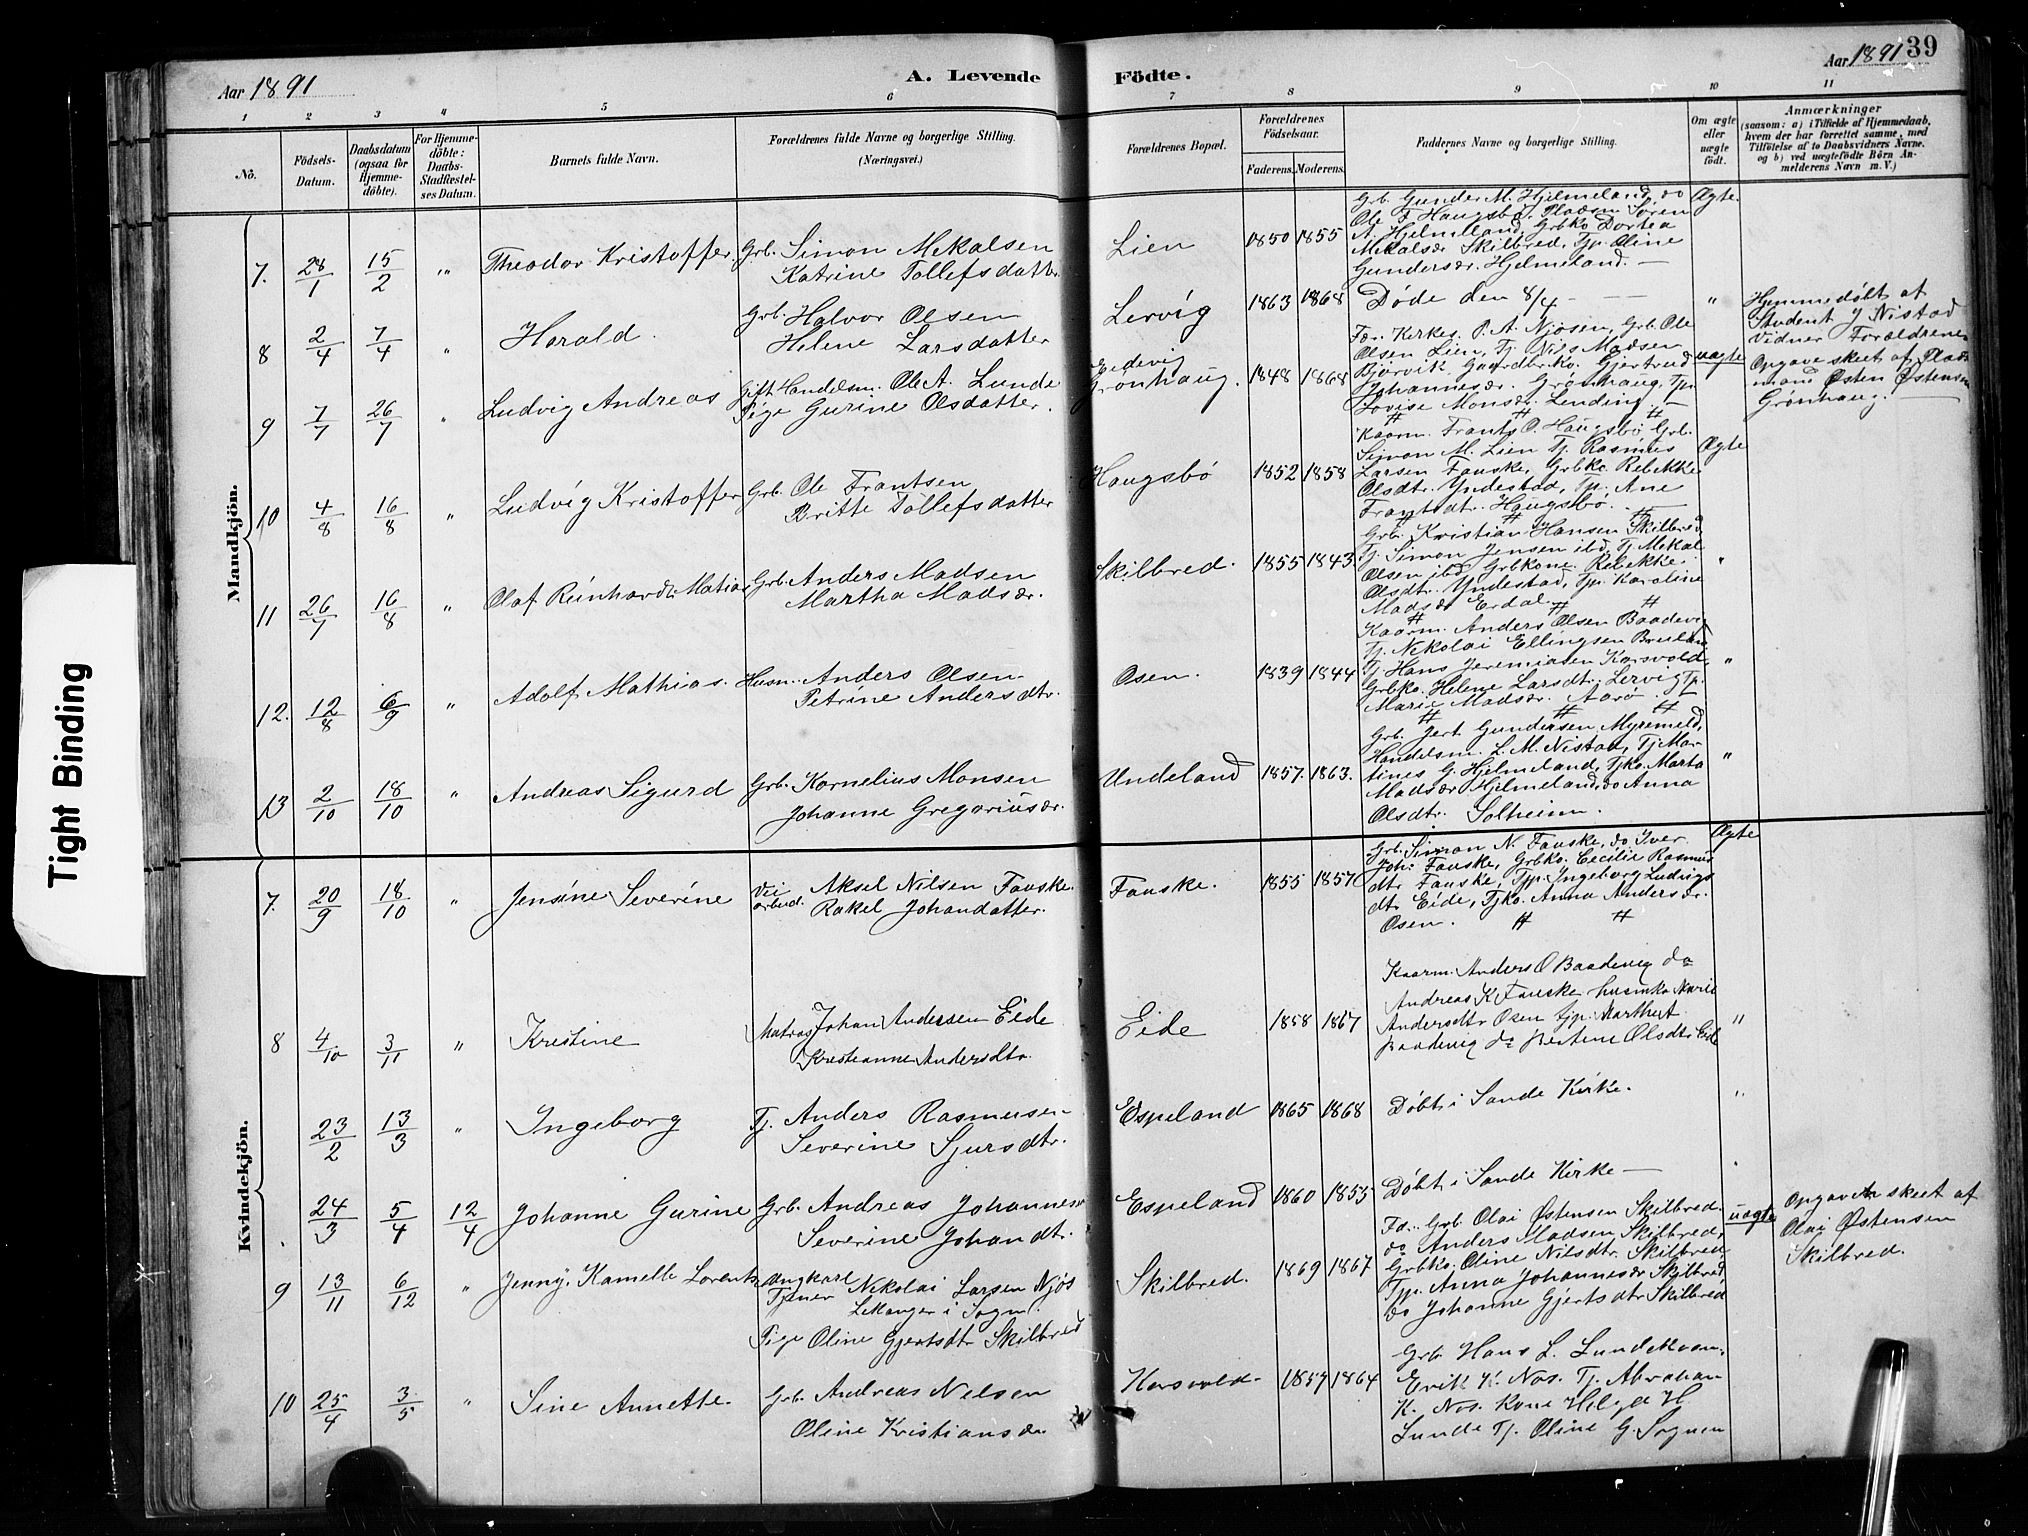 Aar 1891
A. Levende
Födte.
Aar 1891 39
1 2 3 4 5 6 7 8 9 10 11
No.
Födsels-Datum.
Daabsdatum (ogsaa for Hjemmedöbte).
For Hjemmedöbte: Daabs-Stadfæstelses Datum.
Barnets fulde Navn.
Forældrenes fulde Navne og borgerlige Stilling. (Næringsvei.)
Forældrenes Bopæl.
Forældrenes Födselsaar.
Faderens. Moderens.
Faddernes Navne og borgerlige Stilling.
Om ægte eller uægte födt.
Anmærkninger
(saasom: a) i Tilfælde af Hjemmedaab, hvem der har forrettet samme, med Tilföielse af to Daabsvidners Navne. og b) ved uægtefödte Börn Anmelderens Navn m. V.)
Mandkjön.
7. 28/1 15/2 " Theodor Kristoffer Grb. Simon Mekalsen
Katrine Tollefsdatter
Lien 1850 1855
Grb. Gunder M. Hjelmeland, do
Ole F. Haugsbø, Pladsm Søren
A. Hjelmeland, Grbko Dortea
Mekalsdr Skilbred, Tp. Oline
Gundersdr. Hjelmeland. —
Ægte.
8 2/4 7/4 " Harald. Grb. Halvor Olsen
Helene Larsdatter
Lervig 1863 1868 Døde den 8/4 - — —
"
Hjemmedøbt af
Student J Nistad
Vidner Forældrene
9 7/7 26/7 " Ludvig Andreas Gift Handelsm. Ole A. Lunde
Pige Gurine Olsdatter.
Eidevig
Grønhaug. 1848 1868
Fa. Kirkes. P. A. Njøsen, Grb. Ole
Olsen Lien, Tj. Nils Madsen
Bjørvik Gaardbrko. Gjertrud
Johannesdr. Grønhaug, Tp.
Lovise Monsdr. Lending. —
uægte
Opgave skeet af Plads
mand Østen Østensen
Grønhaug. —
10 4/8 16/8 " Ludvig Kristoffer Grb. Ole Frantsen
Britte Tollefsdatter
Haugsbø 1852 1858
Kaarm. Frants O. Haugsbø Grb.
Simon M. Lien Tj. Rasmus
Larsen Fauske, Grbko. Rebekke
Olsdtr. Yndestad, Tp. Ane
Frantsdtr. Haugsbø. —
Ægte
11 26/7 16/8 " Olaf Reinhardt Matias Grb. Anders Madsen
Martha Madsdr.
Skilbred. 1855 1843.
Grb. Kristian Hansen Skilbred
Tj. Simon Jensen ibd, Tj. Mekal
Olsen ibd Grbkone Rebekke
Olsdtr. Yndestad, Tp. Karoline
Madsdr Erdal.
"
12. 12/8 6/9 " Adolf Mathias. Husm. Anders Olsen
Petrine Andersdtr.
Osen. 1839 1844
Kaarm. Anders Olsen Baadevig
Tj. Nikolai Ellingsen Breiland
Tj. Hans Jeremiasen Korsvold,
Grbko. Helene Larsdtr. Lervig Tp.
Marie Madsdr. Aarø.
"
13 2/10 18/10 " Andreas Sigurd Grb. Kornelius Monsen
Johanne Gregoriusdr.
Undeland 1857. 1863.
Grb. Gert Gundersen Myremeld,
Handelsm. L. M. Nistad, Tj Mar-
tines G. Hjelmeland, Tjko. Marta
Madsdr Hjelmeland, do Anna
Olsdtr. Solheim.
"
Kvindekjön.
7. 20/9 18/10 " Jensine Severine Vei
arbeid. Aksel Nilsen Fauske.
Rakel Johandatter.
Fauske. 1855 1857
Grb. Simon N. Fauske, do Iver
Joh: Fauske, Grbko. Cecilie Rasmus
dtr Fauske, Tjp. Ingeborg Ludvigs
dtr Eide, Tjko. Anna Andersdr.
Osen.
Ægte
8 4/10 3/11 " Kristine Matros Johan Andersen Eide
Kristianne Andersdtr.
Eide 1858 1867
Kaarm. Anders O Baadevig do
Andreas K Fauske husmko Marie
Andersdtr Osen tjp. Marthe A.
Baadevig do Olsdtr Eide
"
23/2 13/3 " Ingeborg Tj. Anders Rasmusen
Severine Sjursdtr.
Espeland 1865 1868 Døbt i Sande Kirke. "
24/3 5/4 12/4 Johanne Gurine Grb. Andreas Johannesen
Severine Johandtr.
Espeland 1860 1855 Døbt i Sande Kirke — "
9 13/11 6/12 " Jenny Kamelle Lorents Ungkarl
Tjener Nikolai Larsen Njøs
Lekanger i Sogn.
Pige Oline Gjertsdtr Skilbred
Skilbred. 1869 1867
Fa. Grb Olai Østensen Skilbred.
do Anders Madsen Skilbred,
Grbko. Oline Nilsdtr. Skilbred
Tjp. Anna Johannesdr Skilbred
Do Johanne Gjertsdtr Skilbred
uægte
Opgaven skeet af
Olai Østensen
Skilbred.
10 25/4 3/5 " Sine Annette. Grb. Andreas Nilsen
Oline Kristiansdr
Korsvold. 1859 1864
Grb Hans L. Lundekvam,
Erik K. Nos. Tj. Abraham
K. Nos. Kone Helga H
Lunde Tj. Oline G. Sognen
Tight Binding